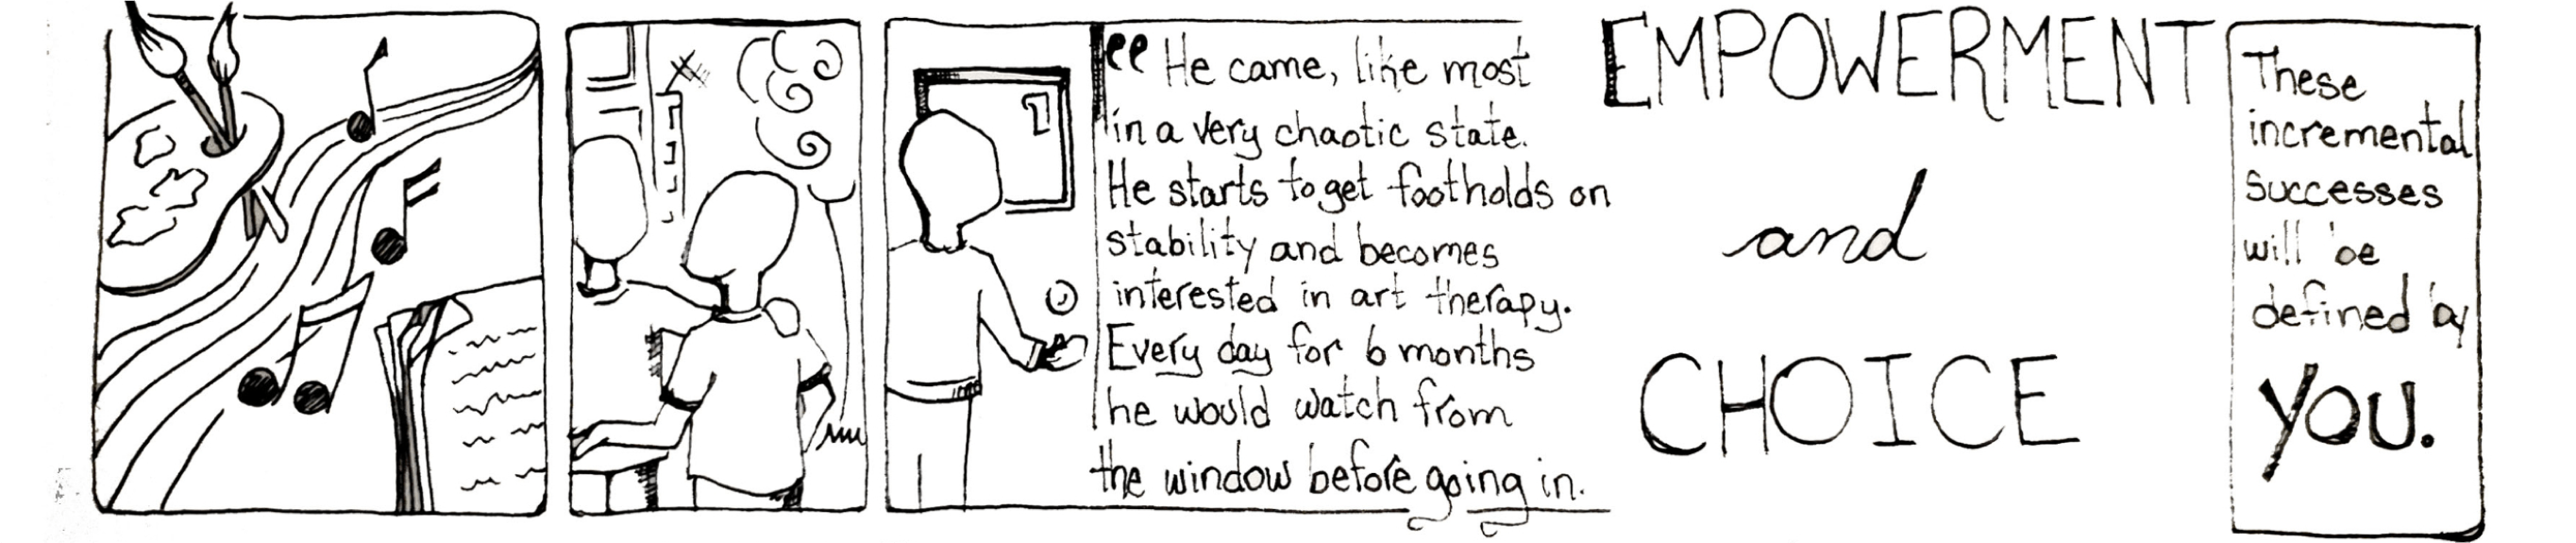 “He came, like most
in a very chaotic state.
He starts to get footholds on
stability and becomes
interested in art therapy.
Every day for 6 months
he would watch from
the window before going in.
EMPOWERMENT
and
CHOICE
These
incremental
successes
will be
defined by
YOU.